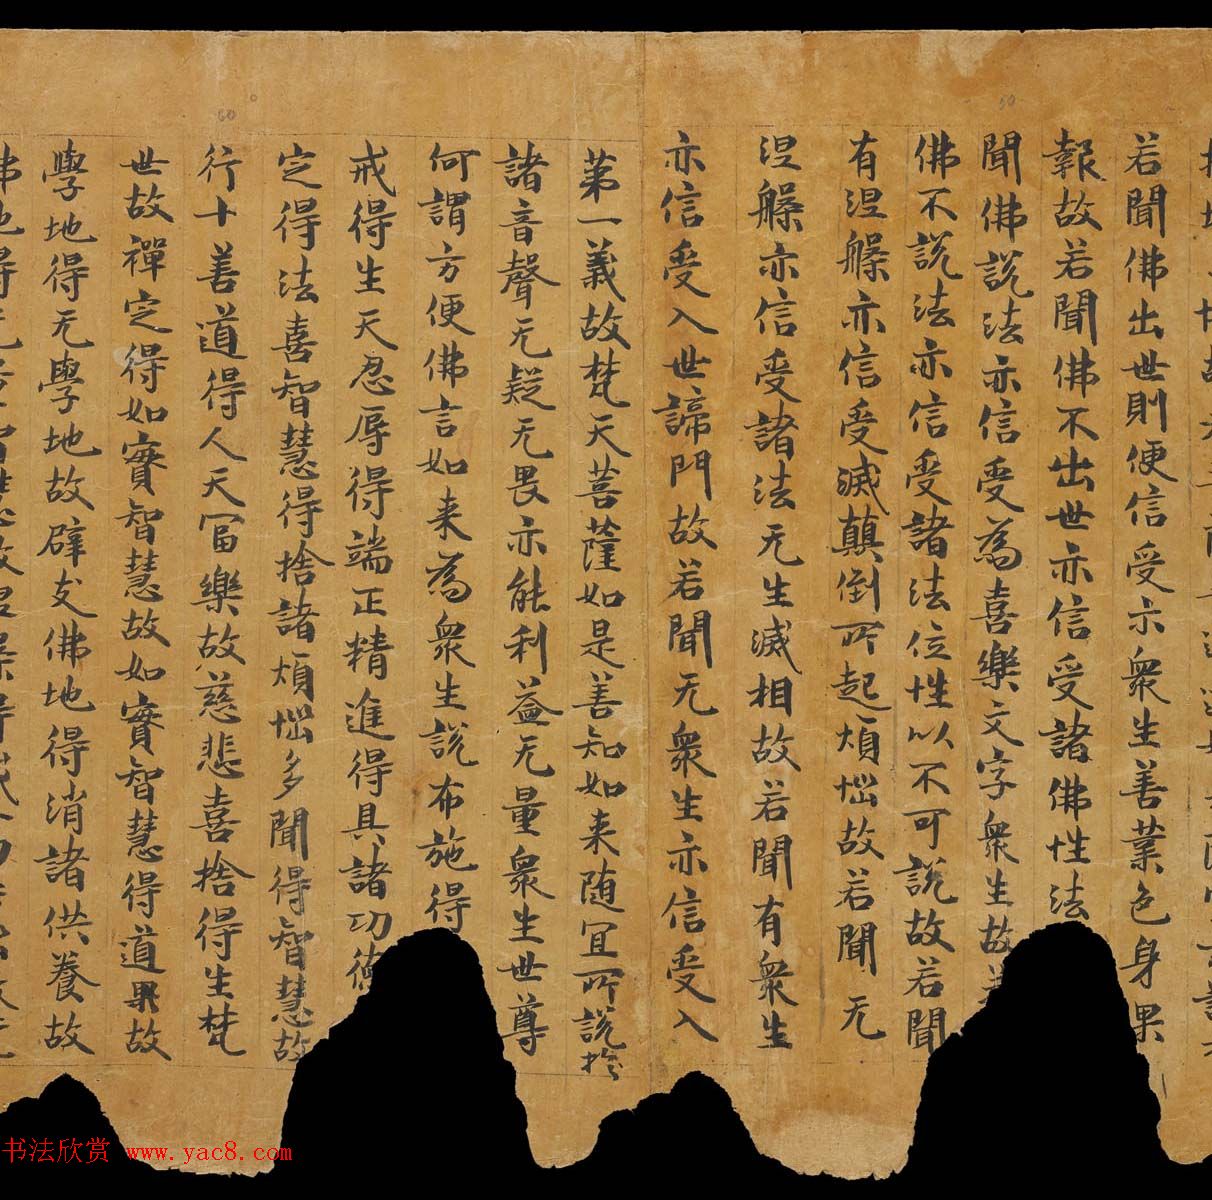 若聞佛出世則便信受示衆生善業色身果
報故若聞佛不出世亦信受諸佛性法
聞佛說法亦信受為喜樂文字衆生故
佛不說法亦信受諸法位性以不可說故若聞
有涅槃亦信受滅顛倒所起煩惱故若聞无
涅槃亦信受諸法无生滅相故若聞有衆生
亦信受入世諦門故若聞无衆生亦信受入
第一義故梵天菩薩如是善知如来随冝所說扵
諸音聲无疑无畏亦能利益无量衆生世尊
何謂方便佛言如来為衆生說布施得
戒得生天忍辱得端正精進得具諸功德
定得法喜智慧得捨諸煩惱多聞得智慧故
行十善道得人天富樂故慈悲喜捨得生梵
世故禪定得如實智慧故如實智慧得道果故
學地得无學地故辟支佛地得消諸供養故
书法欣赏 www.yac8.com